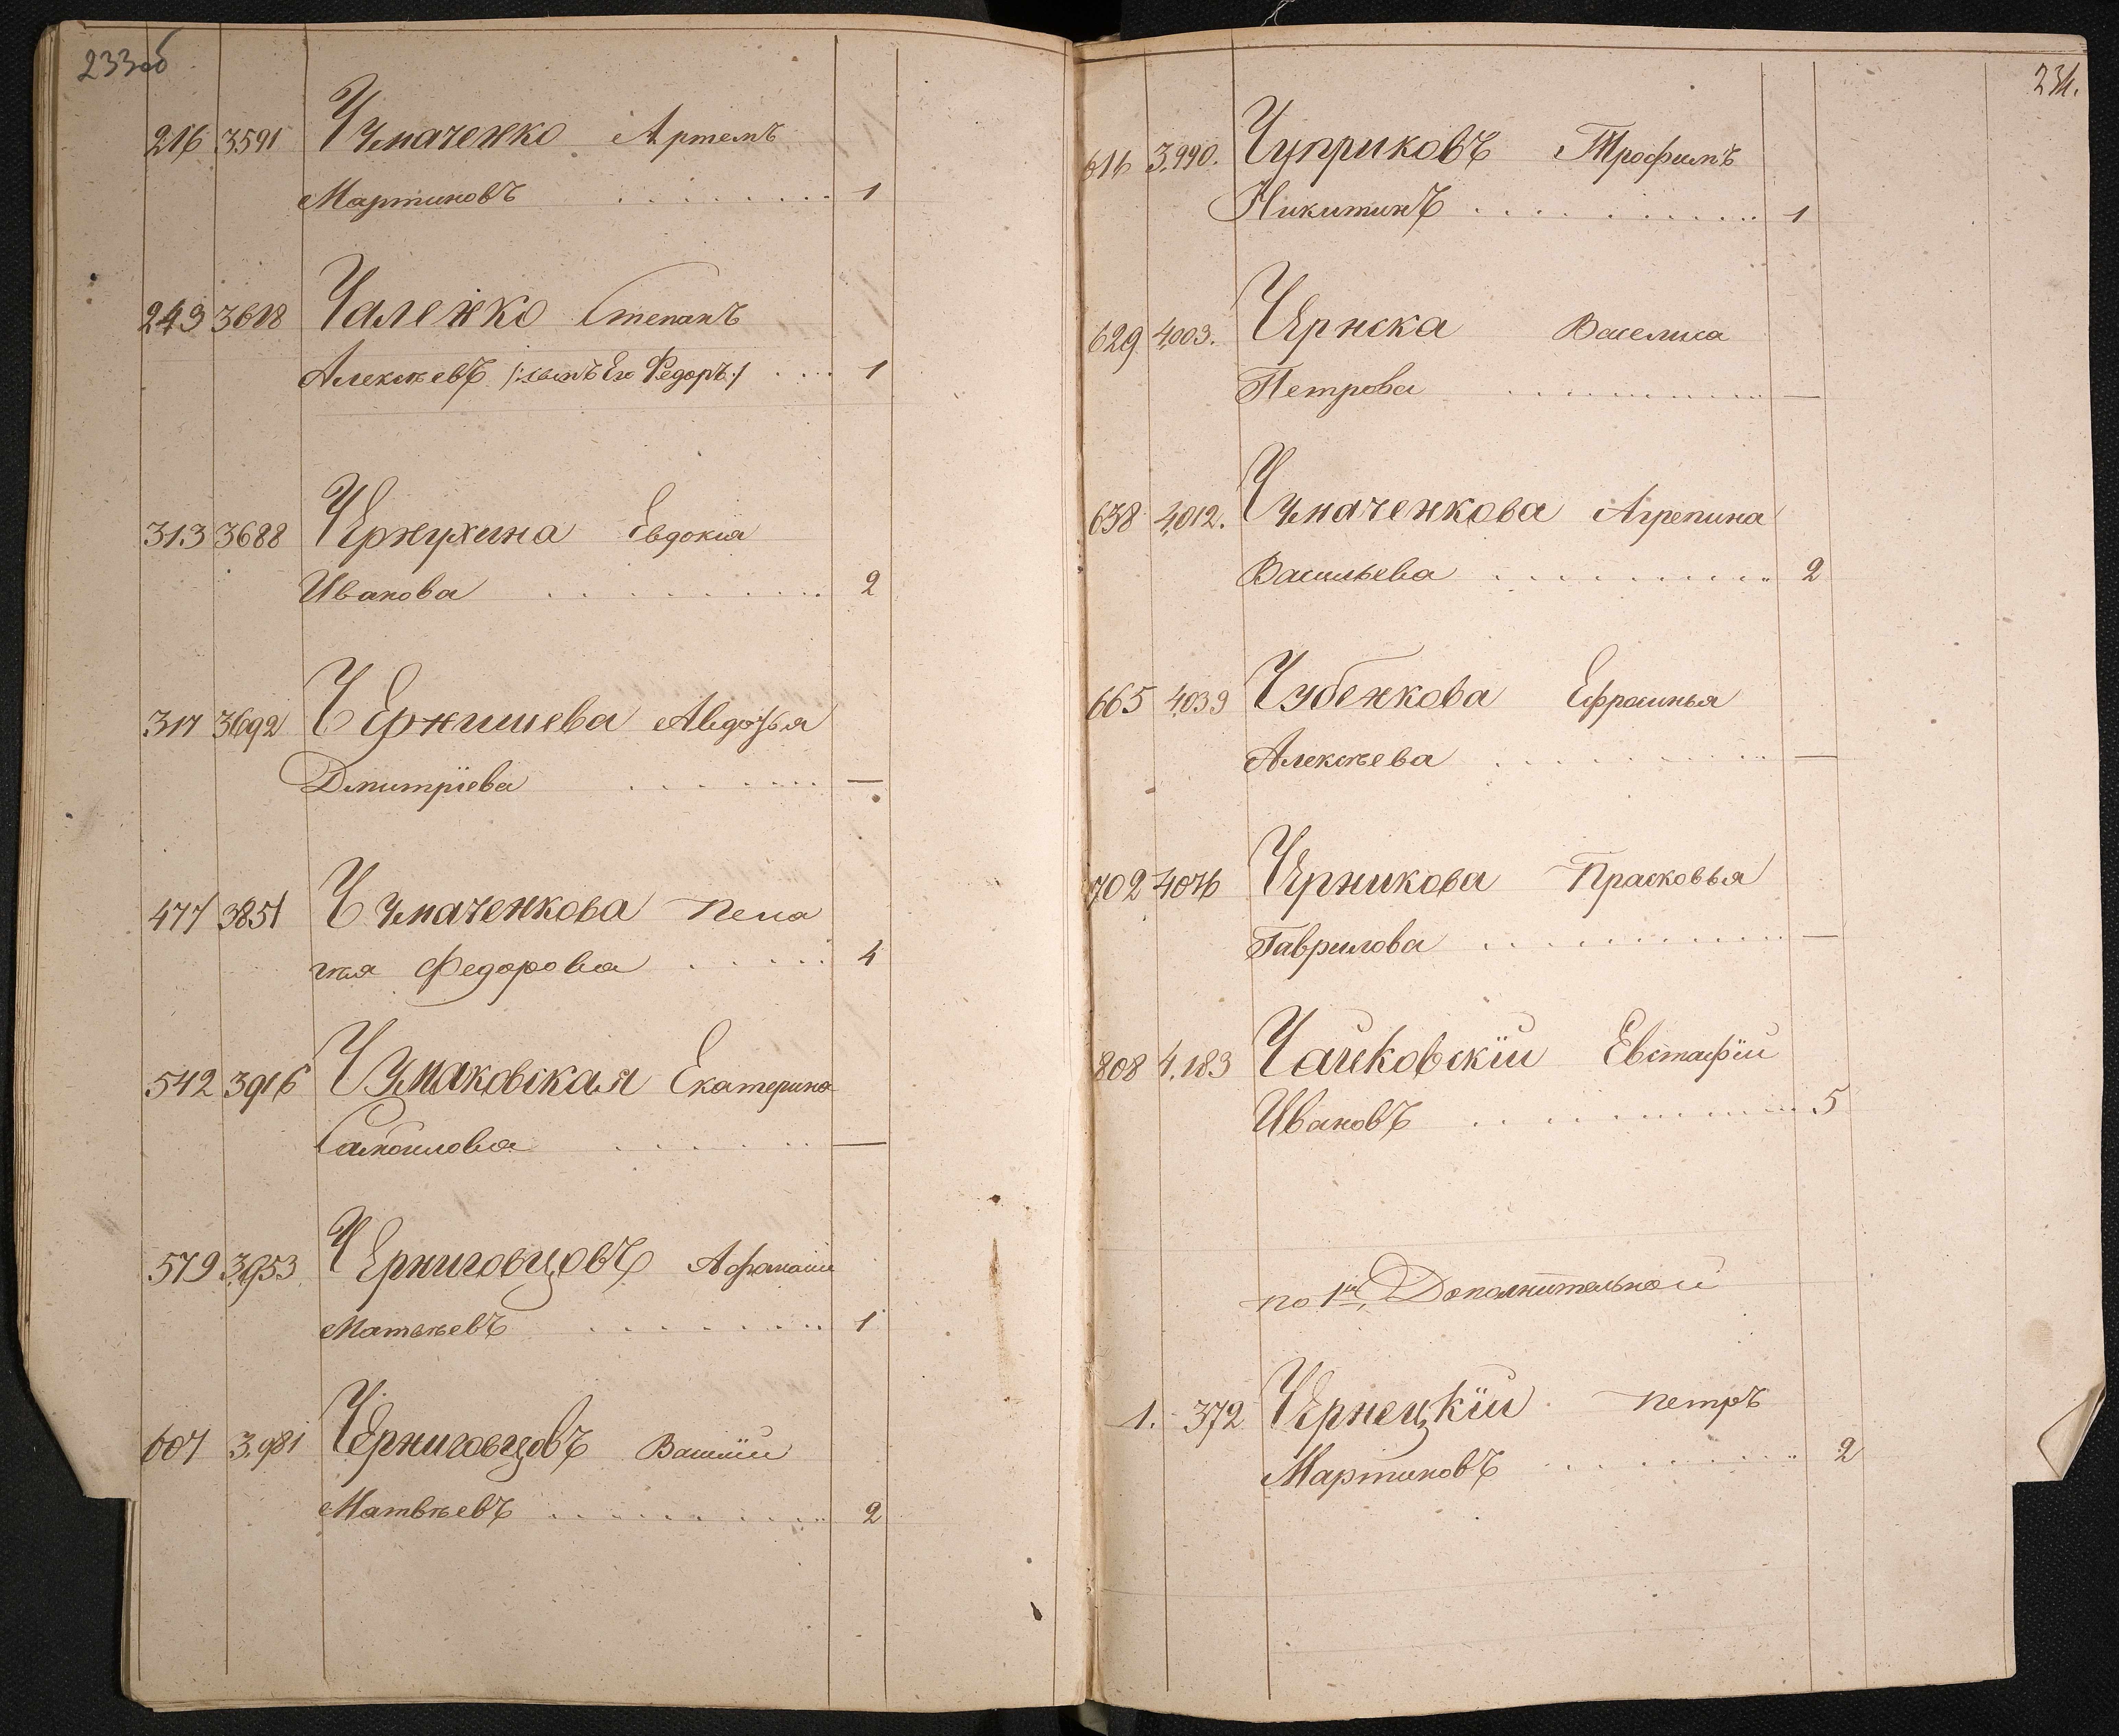 233об
216 3591 Чумаченко Артемъ
Мартиновъ . . . . . . . . 1
243 3618 Чаленко Степанъ
Алексѣевъ /:сынъ Его Федоръ:/ . . . . 1
313 3688 Чернухина Евдокія
Иванова . . . . . . . . . . 2
317 3692 Чернишева Авдотья
Дмитріева . . . . . . . —
477 3851 Чумаченкова Пела
гія Федорова . . . . . . 4
542 3916 Чумаковская Екатерина
Самойлова . . . . . . —
579 3953 Черниговцовъ Афанасій
Матвѣевъ . . . . . . . . 1
607 3.981 Черниговцовъ Василій
Матвѣевъ . . . . . . . . . . 2
234.
616 3.990. Чуприковъ Трофимъ
Никитинъ . . . . . . . . . . . 1
629 4003. Чернска Васелиса
Петрова . . . . . . . . . . —
638 4,012. Чумаченкова Агрепина
Васильева . . . . . . . . . . 2
665 4039 Чубенкова Ефросинья
Алексѣева . . . . . . . . . . —
702 4076 Черникова Прасковья
Гаврилова . . . . . . . . . . —
808 4.183 Чайковскій Евстафій
Ивановъ . . . . . . . . . . . 5
по 1й Дополнительной
1. 372 Чернецкій Петръ
Мартиновъ . . . . . . . . . 2